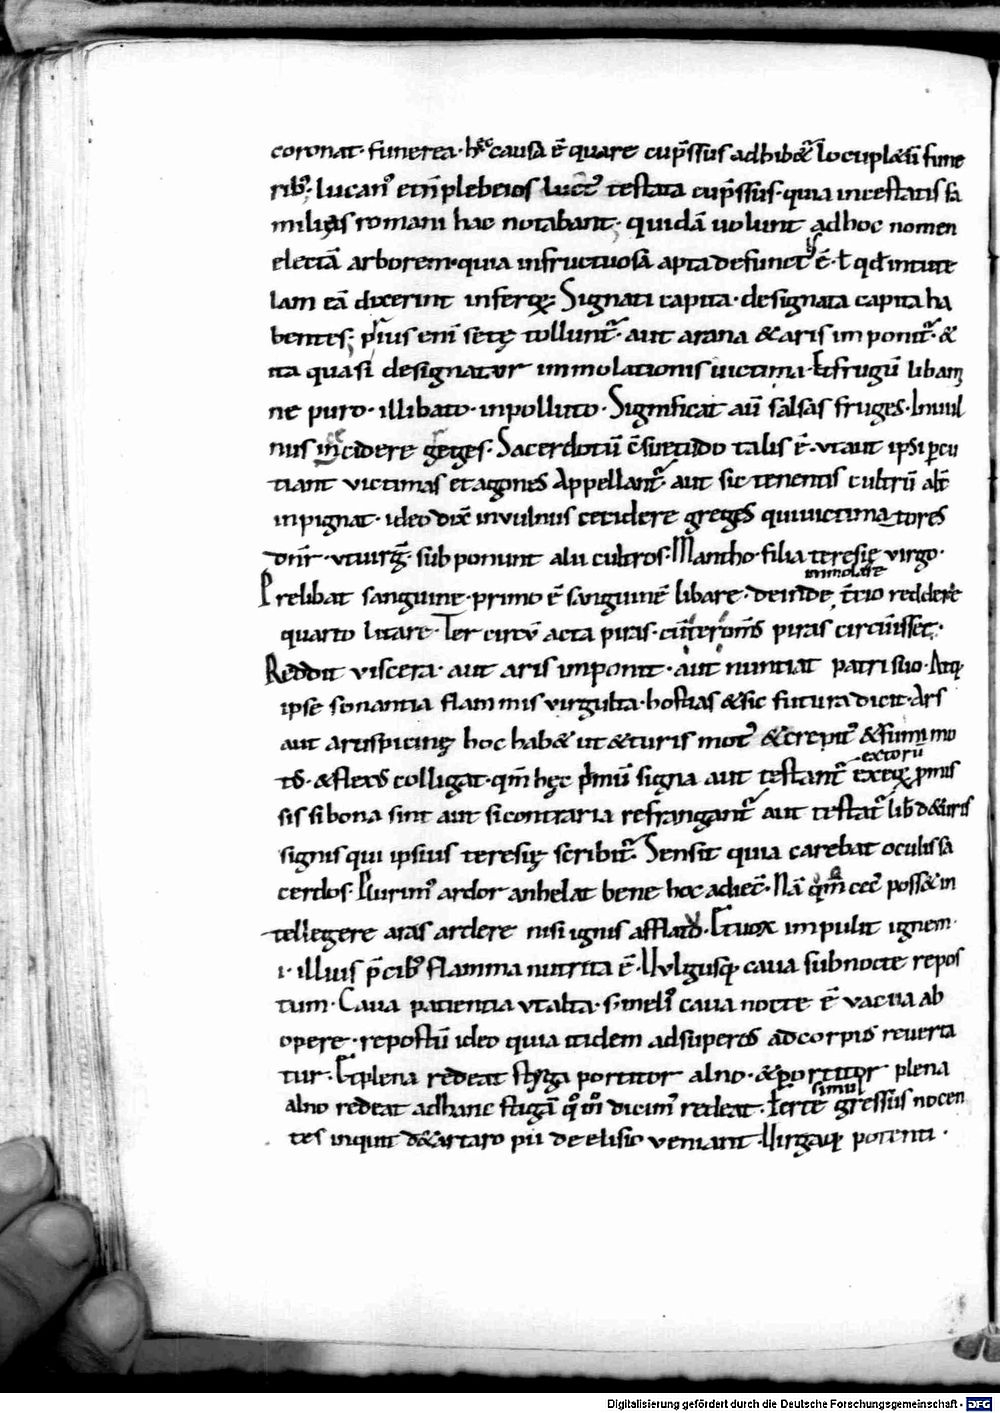 coronat· funerea· h̨ec causa ē quare cup̄ssus adhib& locupl&ū fune
rib; lucan᾽ et n̄ plebeios luct᾽ testata cup̄ssus· quia incestatis fa
milias romani hac notabant· quidā uolunt ad hoc nomen
electā arborem· quia infructuosā apta defunct᾽ ē· ł qđ in tute
lam eā dixerint inferoꝝ; Signati capita· designata capita ha
bentes; p̄ius enī setę tollunt᷑· aut arana & aris imponit᷑· &
ita quasi designatur immolationis uictima· Et frugū libam
ne puro· illibato· inpolluto· Significat aū salsas fruges· Inuul
nus incidere geges· Sacerdotū c̄suetudo talis ē· vt aut ipsi ꝑcu
tiant victimas et agones Appellant᷑· aut sic tenentis cultrū alt̄
inpignat· ideo dix̄ invulnus cecidere greges qui uictima tores
dn̄r· vt uirg̃· sub ponunt alii cultros· Mantho· filia teresię virgo·
Prelibat sanguine· primo ē sanguinē libare· deinde t̄cio reddere
immolare
quarto litare· Ter circū acta piras· cū ter om̄s piras circuisset·
Reddit viscera· aut aris imponit· aut nuntiat patri suo· Atq;
ipse sonantia flammis virgulta· hostias & sic futura dicit· Ars
aut aruspicinę hoc hab& ut & turis mot᾽ & crepit᾽ & fumi mo
t᾽· & flex᾽ colligat· qm̄ hęc p̄mū signa aut testant᷑ exeqꝝ p̄mis
extorū
sis si bona sint aut si contraria refrangant᷑ aut testat᷑ lib̄ d& uris
signis qui ipsius teresię scribit᷑· Sensit quia carebat oculis sa
cerdos· Plurim᾽ ardor anhelat bene hoc adiec̄· Nā qm̄ cec᾽ poss& in
tellegere aras ardere nisi ignis afflato· Et uox impulit ignem·
i· illuis p̄cib᾽ flamma nutrita ē· Uulgusq; caua sub nocte repos
tum· Caua patientia vt alta· s· meli᾽ caua nocte ē vacua ab
opere· repostū ideo quia itidem ad superos ad corpus reuerta
tur· Et plena redeat styga portitor alno· & portitor plena
alno redeat ad hanc stigā q᾽ m̄ dicim᾽ redeat· Ferte gressus nocen
simul
tes inquit d& artaro pii de elisio veniant· Uirgaq; potenti·
Digitalisierung gefördert durch die Deutsche Forschungsgemeinschaft · DFG